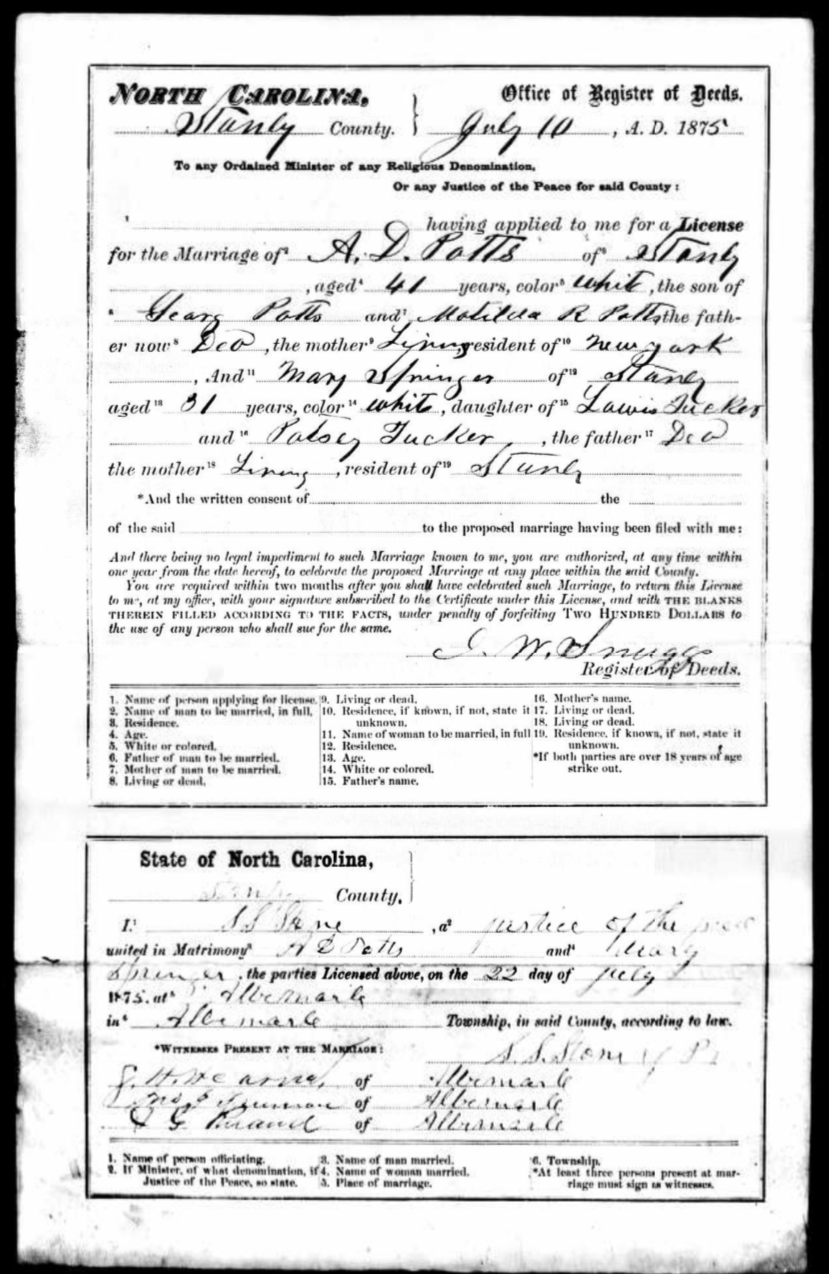 NORTH CAROLINA, Office of Register of Deeds.
Stanly County. } July 10, A. D. 1875
To any Ordained Minister of any Religious Denomination,
Or any Justice of the Peace for said County:
1 having applied to me for a License
for the Marriage of 2 A. D. Potts of 3 Stanly
, aged 4 41 years, color 5 white, the son of
6 Georg Potts and 7 Matilda R Potts the fath-
er now 8 Ded, the mother 9 Living resident of 10 New york
, And 11 Mary Springer of 12 Stanly
aged 13 31 years, color 14 white, daughter of 15 Lewis Tucker
and 16 Patsey Tucker, the father 17 Ded
the mother 18 Living, resident of 19 Stanly
*And the written consent of the
of the said to the proposed marriage having been filed with me:
And there being no legal impediment to such Marriage known to me, you are authorized, at any time within
one year from the date hereof, to celebrate the proposed Marriage at any place within the said County.
You are required within two months after you shall have celebrated such Marriage, to return this License
to me, at my office, with your signature subscribed to the Certificate under this License, and with THE BLANKS
THEREIN FILLED ACCORDING TO THE FACTS, under penalty of forfeiting TWO HUNDRED DOLLARS to
the use of any person who shall sue for the same.
I. W. Snuggs
Register of Deeds.
1. Name of person applying for license. 9. Living or dead. 16. Mother's name.
2. Name of man to be married, in full. 10. Residence, if known, if not, state it 17. Living or dead.
3. Residence. unknown. 18. Living or dead.
4. Age. 11. Name of woman to be married, in full 19. Residence, if known, if not, state it
5. White or colored. 12. Residence. unknown.
6. Father of man to be married. 13. Age. *If both parties are over 18 years of age
7. Mother of man to be married. 14. White or colored. strike out.
8. Living or dead. 15. Father's name.
State of North Carolina,
County, }
I, 1 S S Stone, a 2 justice of the
united in Matrimony 3 A D Potts and 4 Mary
Springer, the parties Licensed above, on the 22 day of July
1875, at 5 Albemarle
in 6 Albemarle Township, in said County, according to law.
*WITNESSES PRESENT AT THE MARRIAGE: S. S. Stone
of Albemarle
of Albemarle
of Albemarle
1. Name of person officiating. 3. Name of man married. 6. Township.
2. If Minister, of what denomination, if 4. Name of woman married. *At least three persons present at mar-
Justice of the Peace, so state. 5. Place of marriage. riage must sign as witnesses.